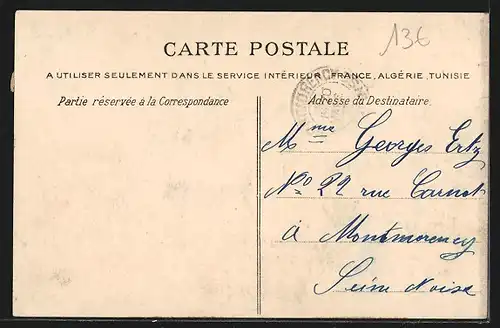 13€
CARTE POSTALE
A UTILISER SEULEMENT DANS LE SERVICE INTÉRIEUR (FRANCE, ALGÉRIE, TUNISIE
Partie réservée à la Correspondance
Adresse du Destinataire.
Mme Georges Ertz
No 22 rue Carnot
à Montmorency
Seine Noise